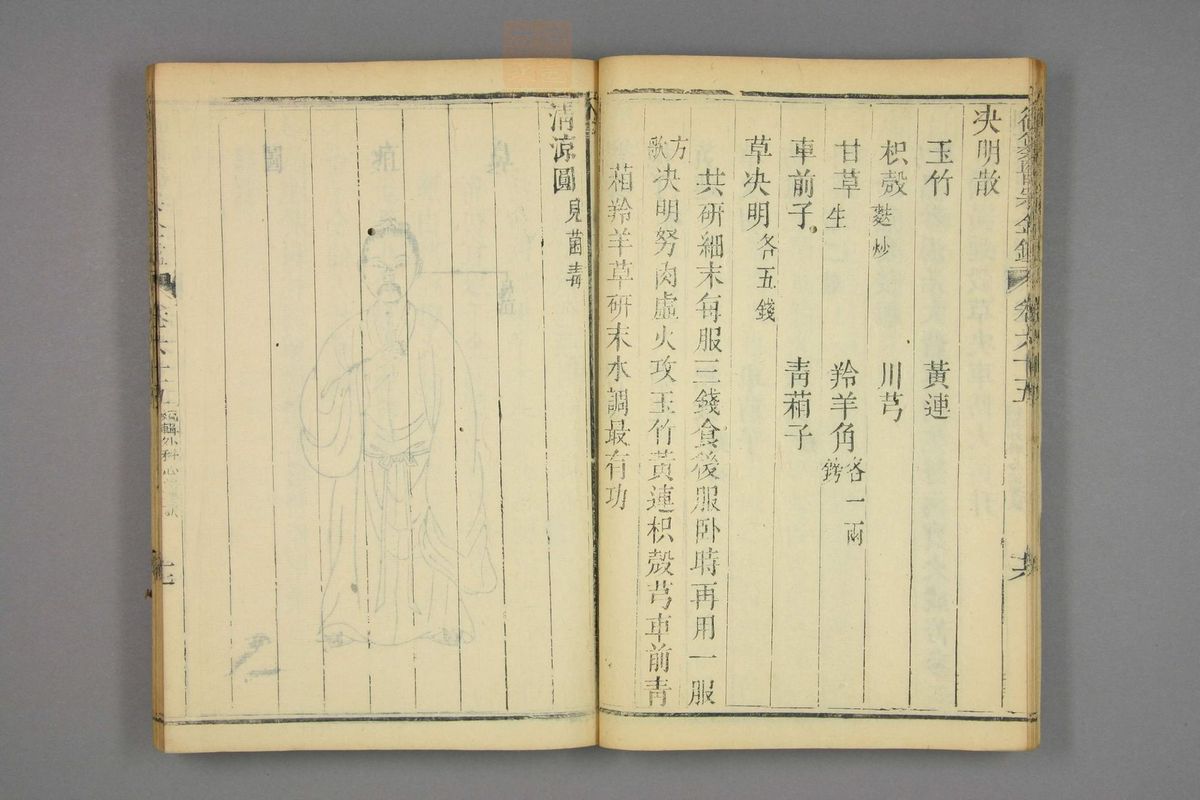 決明散
玉竹 黃連
枳殼麩炒 川芎
甘草生 羚羊角鎊各一兩
車前子 青葙子
草決明各五錢
共研細末每服三錢食後服卧時再用一服
方歌 決明努肉虛火攻玉竹黃連枳殼芎車前青
葙羚羊草研末水調最有功
清涼圓見菌毒
卷六十五